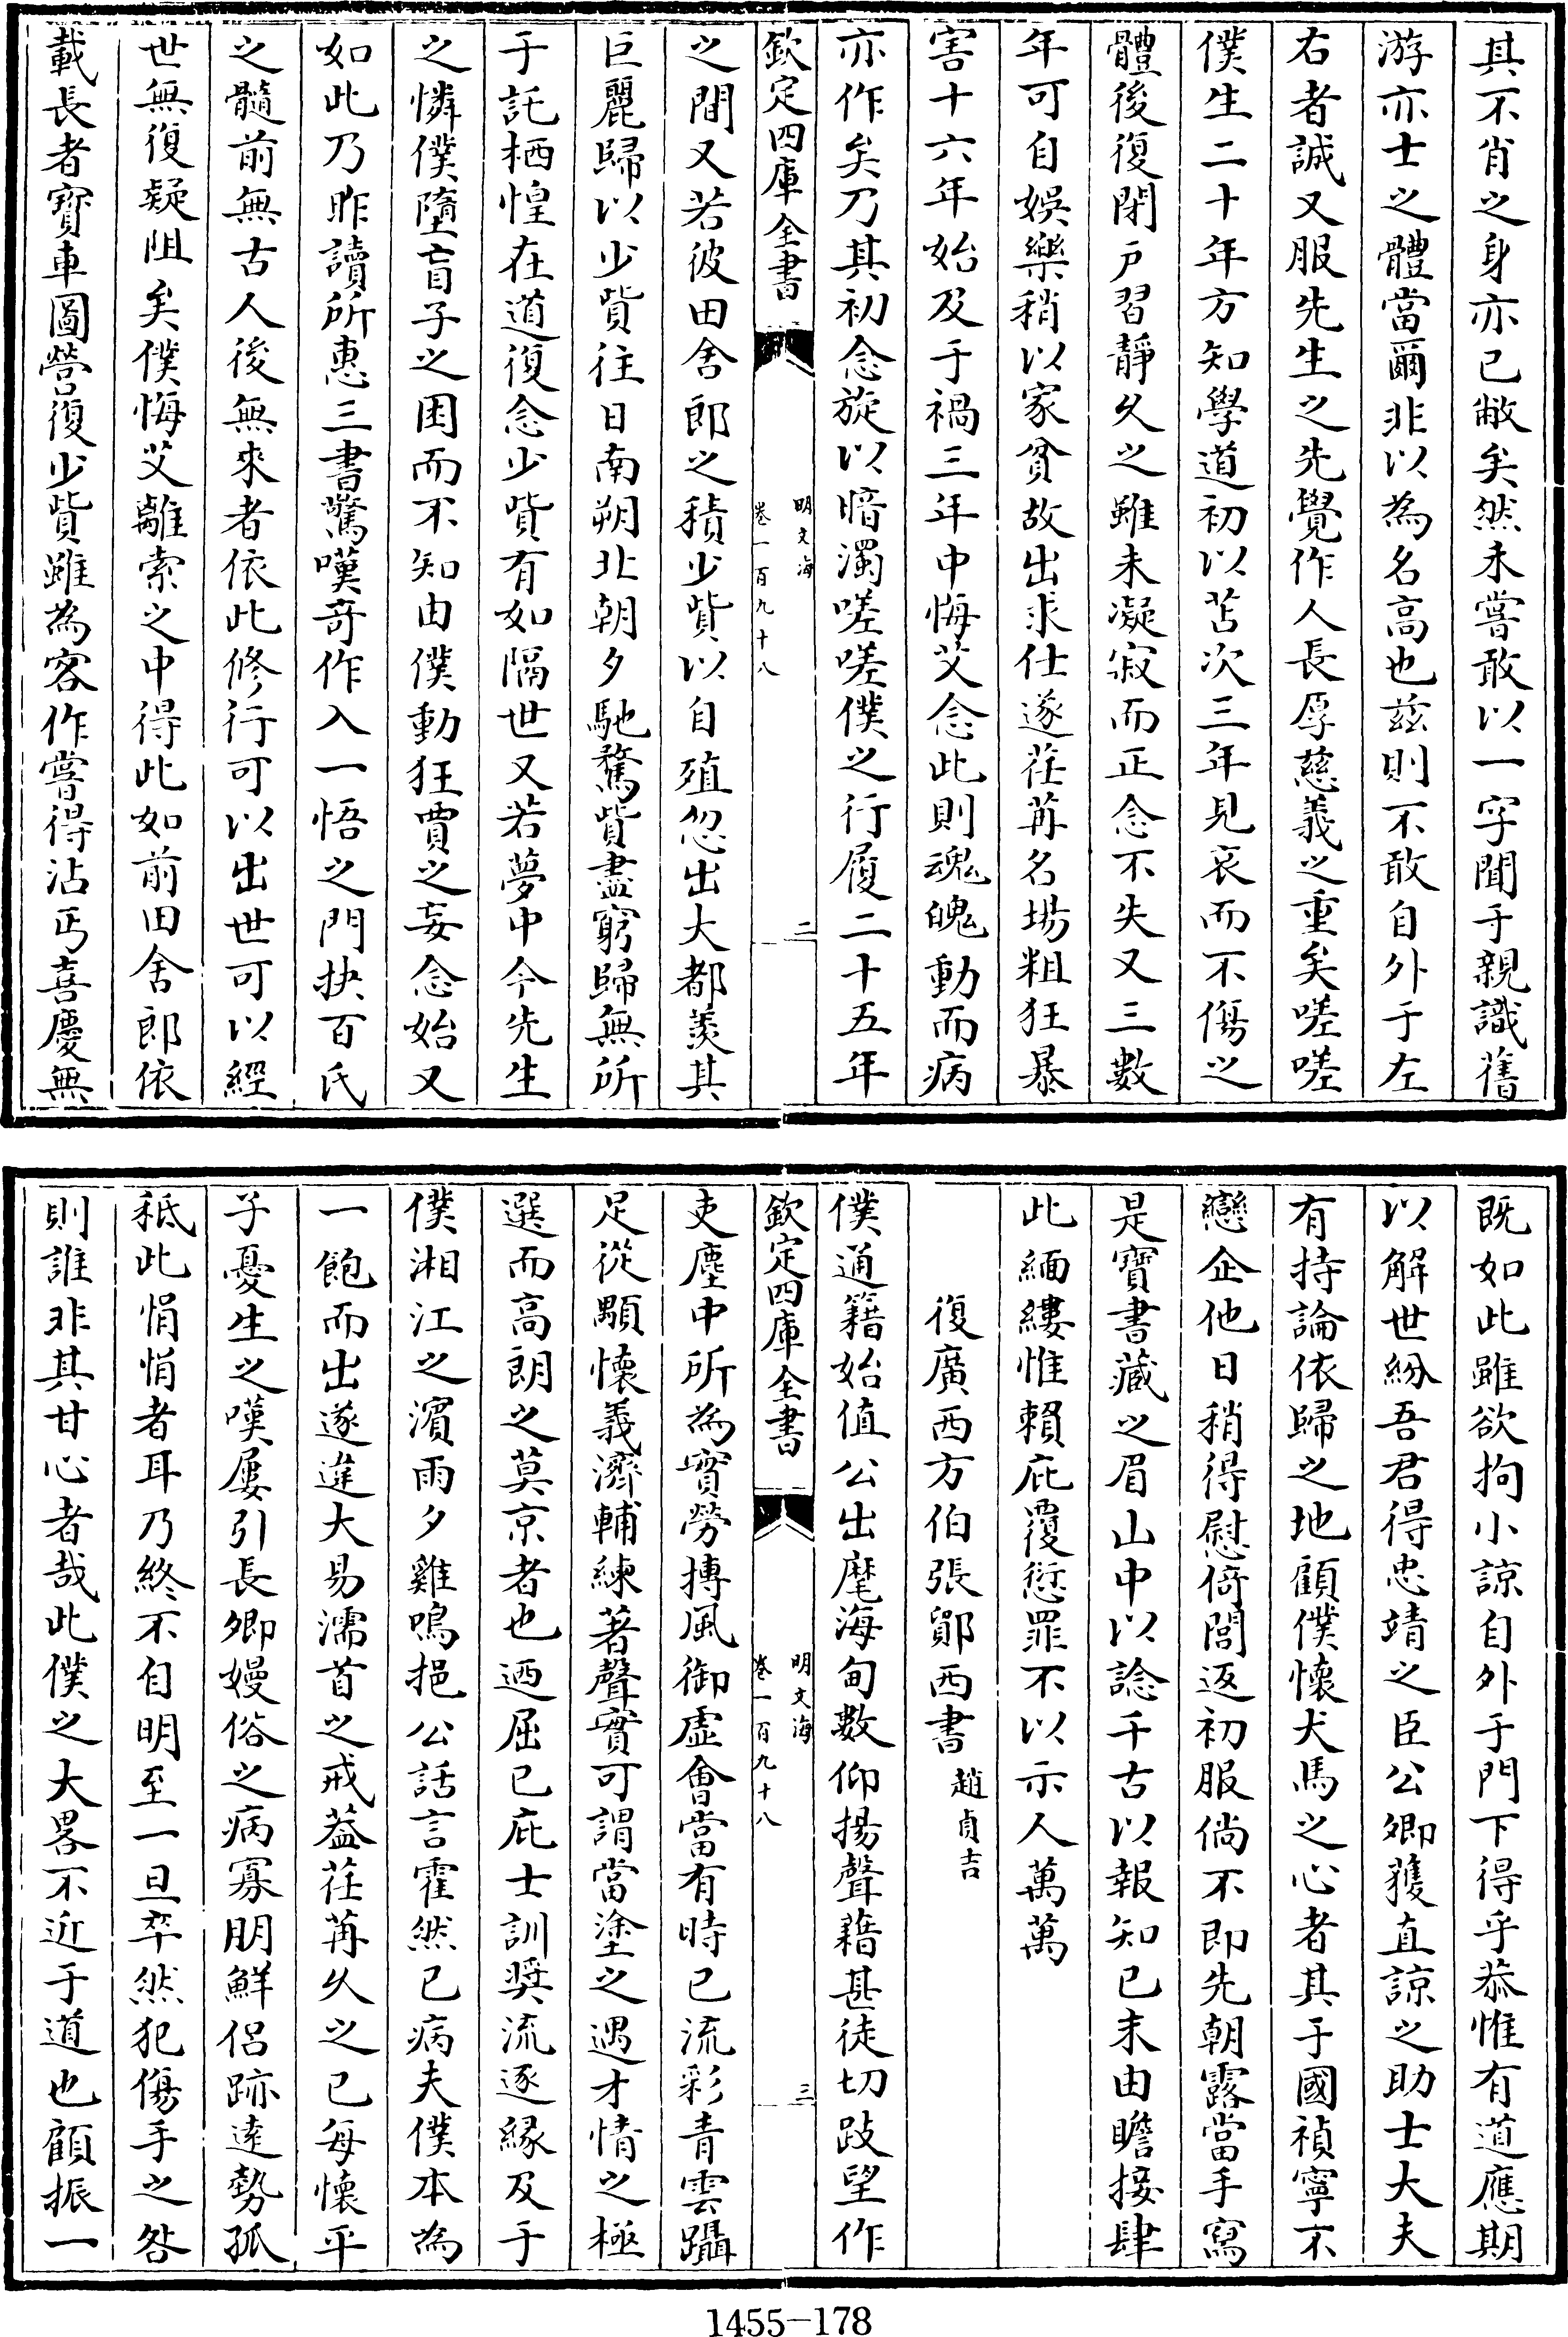 其不肖之身亦已敝矣然未嘗敢以一字聞于親識舊
游亦士之體當爾非以為名高也兹則不敢自外于左
右者誠又服先生之先覺作人長厚慈義之重矣嗟嗟
僕生二十年方知學道初以苦次三年見哀而不傷之
體後復閉户習靜久之雖未凝寂而正念不失又三數
年可自娛樂稍以家貧故出求仕遂荏苒名場粗狂暴
害十六年始及于禍三年中悔艾念此則魂魄動而病
亦作矣乃其初念旋以暗濁嗟嗟僕之行履二十五年
欽定四庫全書
明文海
卷一百九十八
二
之間又若彼田舍郎之積少貲以自殖忽出大都羡其
巨麗歸以少貲往日南朔北朝夕馳騖貲盡窮歸無所
于託栖惶在道復念少貲有如隔世又若夢中今先生
之憐僕墮盲子之困而不知由僕動狂賈之妄念始又
如此乃昨讀所惠三書驚嘆奇作入一悟之門抉百氏
之髓前無古人後無來者依此修行可以出世可以經
世無復疑阻矣僕悔艾離索之中得此如前田舍郎依
載長者寶車圖營復少貲雖為客作嘗得沾丐喜慶無
既如此雖欲拘小諒自外于門下得乎恭惟有道應期
以解世紛吾君得忠靖之臣公卿獲直諒之助士大夫
有持論依歸之地顧僕懷犬馬之心者其于國禎寧不
戀企他日稍得慰倚閭返初服倘不即先朝露當手寫
是寶書藏之眉山中以諗千古以報知已未由瞻接肆
此緬縷惟賴庇覆愆罪不以示人萬萬
復廣西方伯張鄖西書
趙貞吉
僕通籍始值公出麾海甸數仰揚聲藉甚徒切跂望作
欽定四庫全書
明文海
卷一百九十八
三
吏塵中所為實勞摶風御虛會當有時已流彩青雲躡
足從顒懷義濟輔練著聲實可謂當塗之遇才情之極
選而高朗之莫京者也迺屈已庇士訓奬流逐緣及于
僕湘江之濱雨夕雞鳴挹公話言霍然已病夫僕本為
一飽而出遂違大易濡首之戒葢荏苒久之已每懷平
子憂生之嘆屢引長卿嫚俗之病寡朋鮮侣跡遠勢孤
秪此悁悁者耳乃終不自明至一旦卒然犯傷手之咎
則誰非其甘心者哉此僕之大畧不近于道也顧振一
1455-178